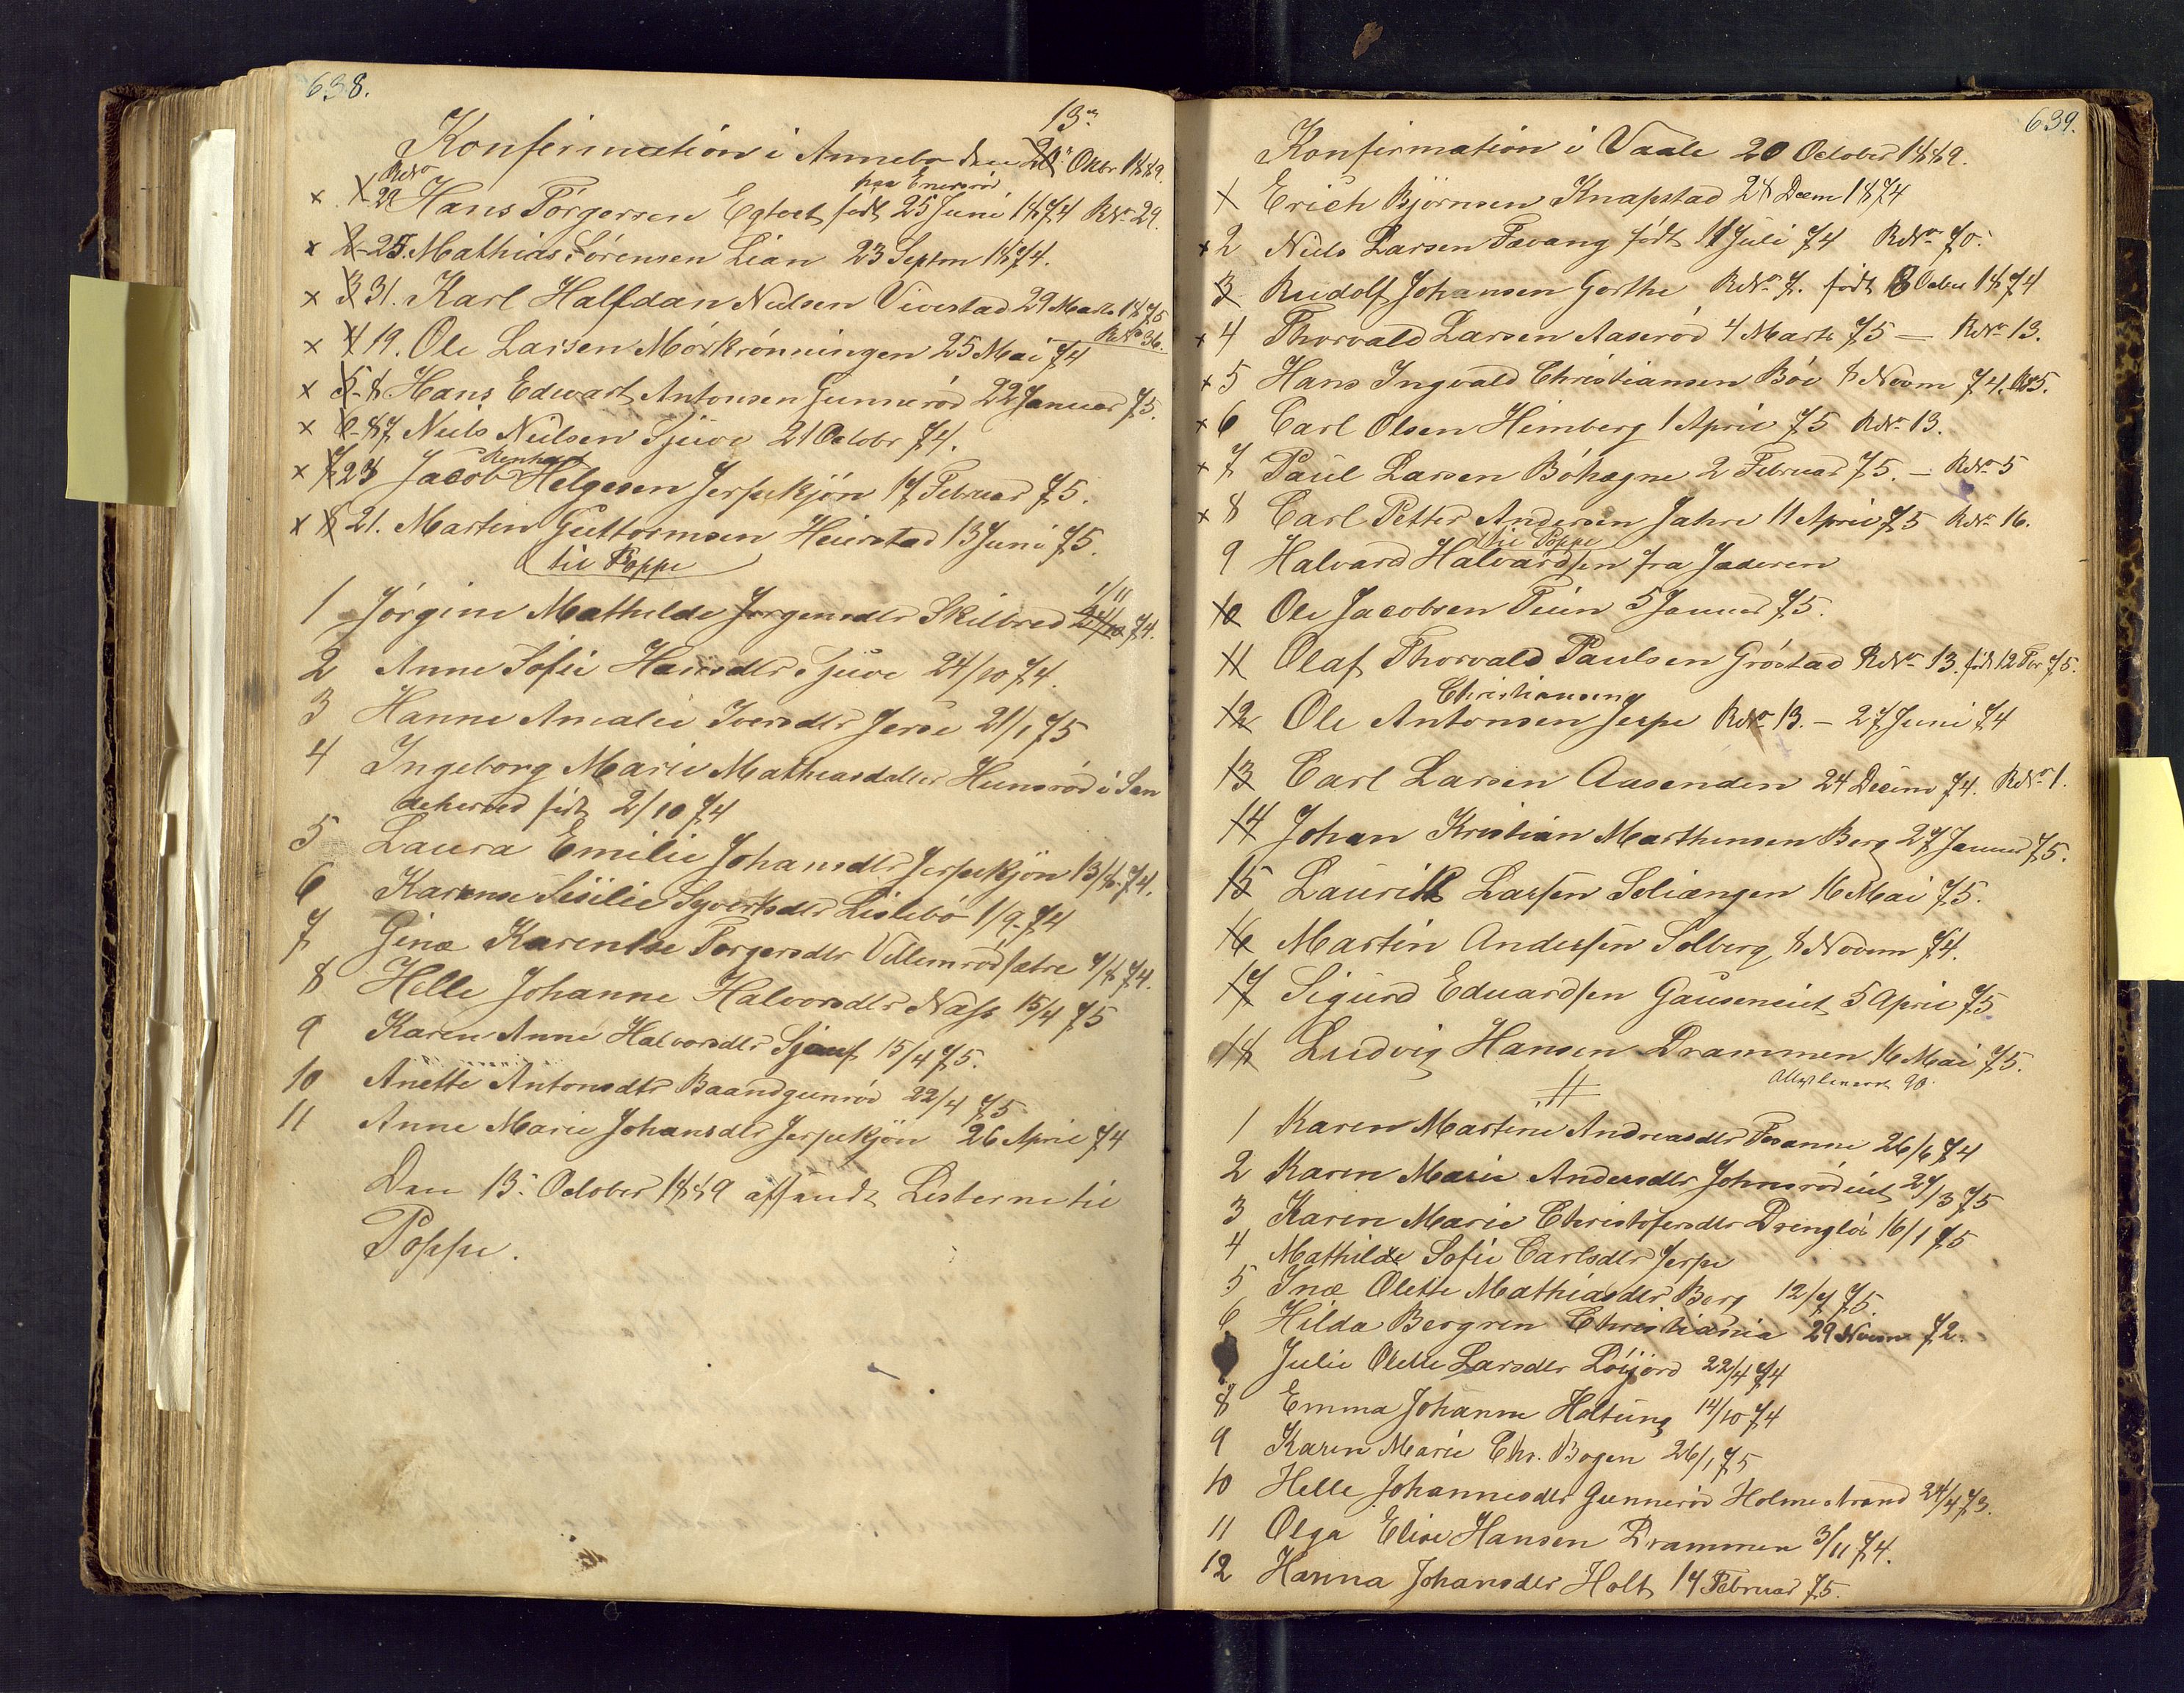 638.
13de
Konfirmation i Annebo den 20 Oktbr 1889.
RdNo
paa Enersrød
x 1-29 Hans Törgersen Egtvet født 25 Juni 1874 RNo 29.
x 2-25. Mathias Sörensen Lian 23 Septm 1874.
x 3 31. Karl Halfdan Nielsen Vivestad 29 Marts 1875
RNo 36.
x 4 19. Ole Larsen Mörkrönningen 25 Mai 74
x 5-8 Hans Edwart Antonsen Gunnerød 22 Januar 75.
x 6-87 Niels Nielsen Tjuve 21 Octobr 74.
Renhard
x 7 23 Jacob Helgesen Jerpekjön 17 Februar 75.
x 8 21. Martin Guttormsen Heierstad 13 Juni 75.
til Poppe
1/11
1 Jörgine Mathilde Jörgensdtr Skilbred 74.
2 Anne Sofie Hansdtr Tjuve 24/10 74.
3 Hanne Amalie Iversdtr Jerse 21/1 75
4 Ingeborg Marie Mathiasdatter Hunsrød i San
deherred født 2/10 74
5 Laura Emilie Johansdtr Jerpekjön 13/10 74.
6 Karense Sisilie Syvertsdtr Lislebö 1/9 74
7 Gina Karentse Torgersdtr Villemrød sætre 4/7 74.
8 Helle Johanne Halvorsdtr Nass 15/4 75
9 Karen Anne Halvorsdtr 15/4 75.
10 Anette Antonsdtr Baandgunrød 22/4 75
11 Anne Marie Johansdtr Jerpekjön 26 April 74
Den 15. October 1889 afsendt Listerne til
Poppe.
639.
Konfirmation i Vaale 20 October 1889.
1 Erich Björnsen Knapstad 28 Decm 1874
x 2 Niels Larsen Tævang født 11 Juli 74 RdNo 70.
3 Rudolf Johansen Gorthe RdNo 7. født 8 Octbr 1874
x 4 Thorvald Larsen Aaserød 4 Marts 75 — RdNo 13.
x 5 Hans Ingvald Christiansen Böe 8 Novm 74. RNo 5.
x 6 Carl Olsen Himberg 1 April 75 RdNo 13.
x 7 Paul Larsen Böhagne 2 Februar 75. — RdNo 5
x 8 Carl Petter Andersen Jahre 11 April 75 RdNo 16.
til Poppe
9 Halvard Halvardsen fra Jæderen
10 Ole Jacobsen Tein 5 Januar 75.
11 Olaf Thorvald Paulsen Gröstad RdNo 13. født 12 Fbr 75.
Christiansen
12 Ole Antonsen Jespe RdNo 13. — 27 Juni 74
13 Carl Larsen Aasenden 24 Decem 74. RdNo 1.
14 Johan Kristian Marthinsen Berg 27 Januar 75.
15 Laurits Larsen Soliangen 16 Mai 75.
16 Martin Andersen Solberg 8 Novem 74.
17 Sigurd Eduardsen Gauseneiet 5 April 75
18 Ludvig Hansen Drammen 16 Mai 75.
90.
1 Karen Martine Andreasdtr Fosanne 26/6 74
2 Karen Marie Andersdtr Johnsrødeiet 27/3 75
3 Karen Marie Christofersdtr Dringlös 16/1 75
4 Mathilde Sofie Carlsdtr Jerpe
5 Ina Olette Mathiasdtr Berg 12/7 75.
6 Hilda Bergren Christiania 29 Novem 72.
Julie Olette Larsdtr Löijord 22/4 74
8 Emma Johanne Holtung 14/10 74
9 Karen Marie Chr. Bogen 26/1 75
10 Helle Johannesdtr Gunnerød Holmestrand 24/4 73.
11 Olga Elise Hansen Drammen 3/11 74.
12 Hanna Johansdtr Holt 17 Februar 75.